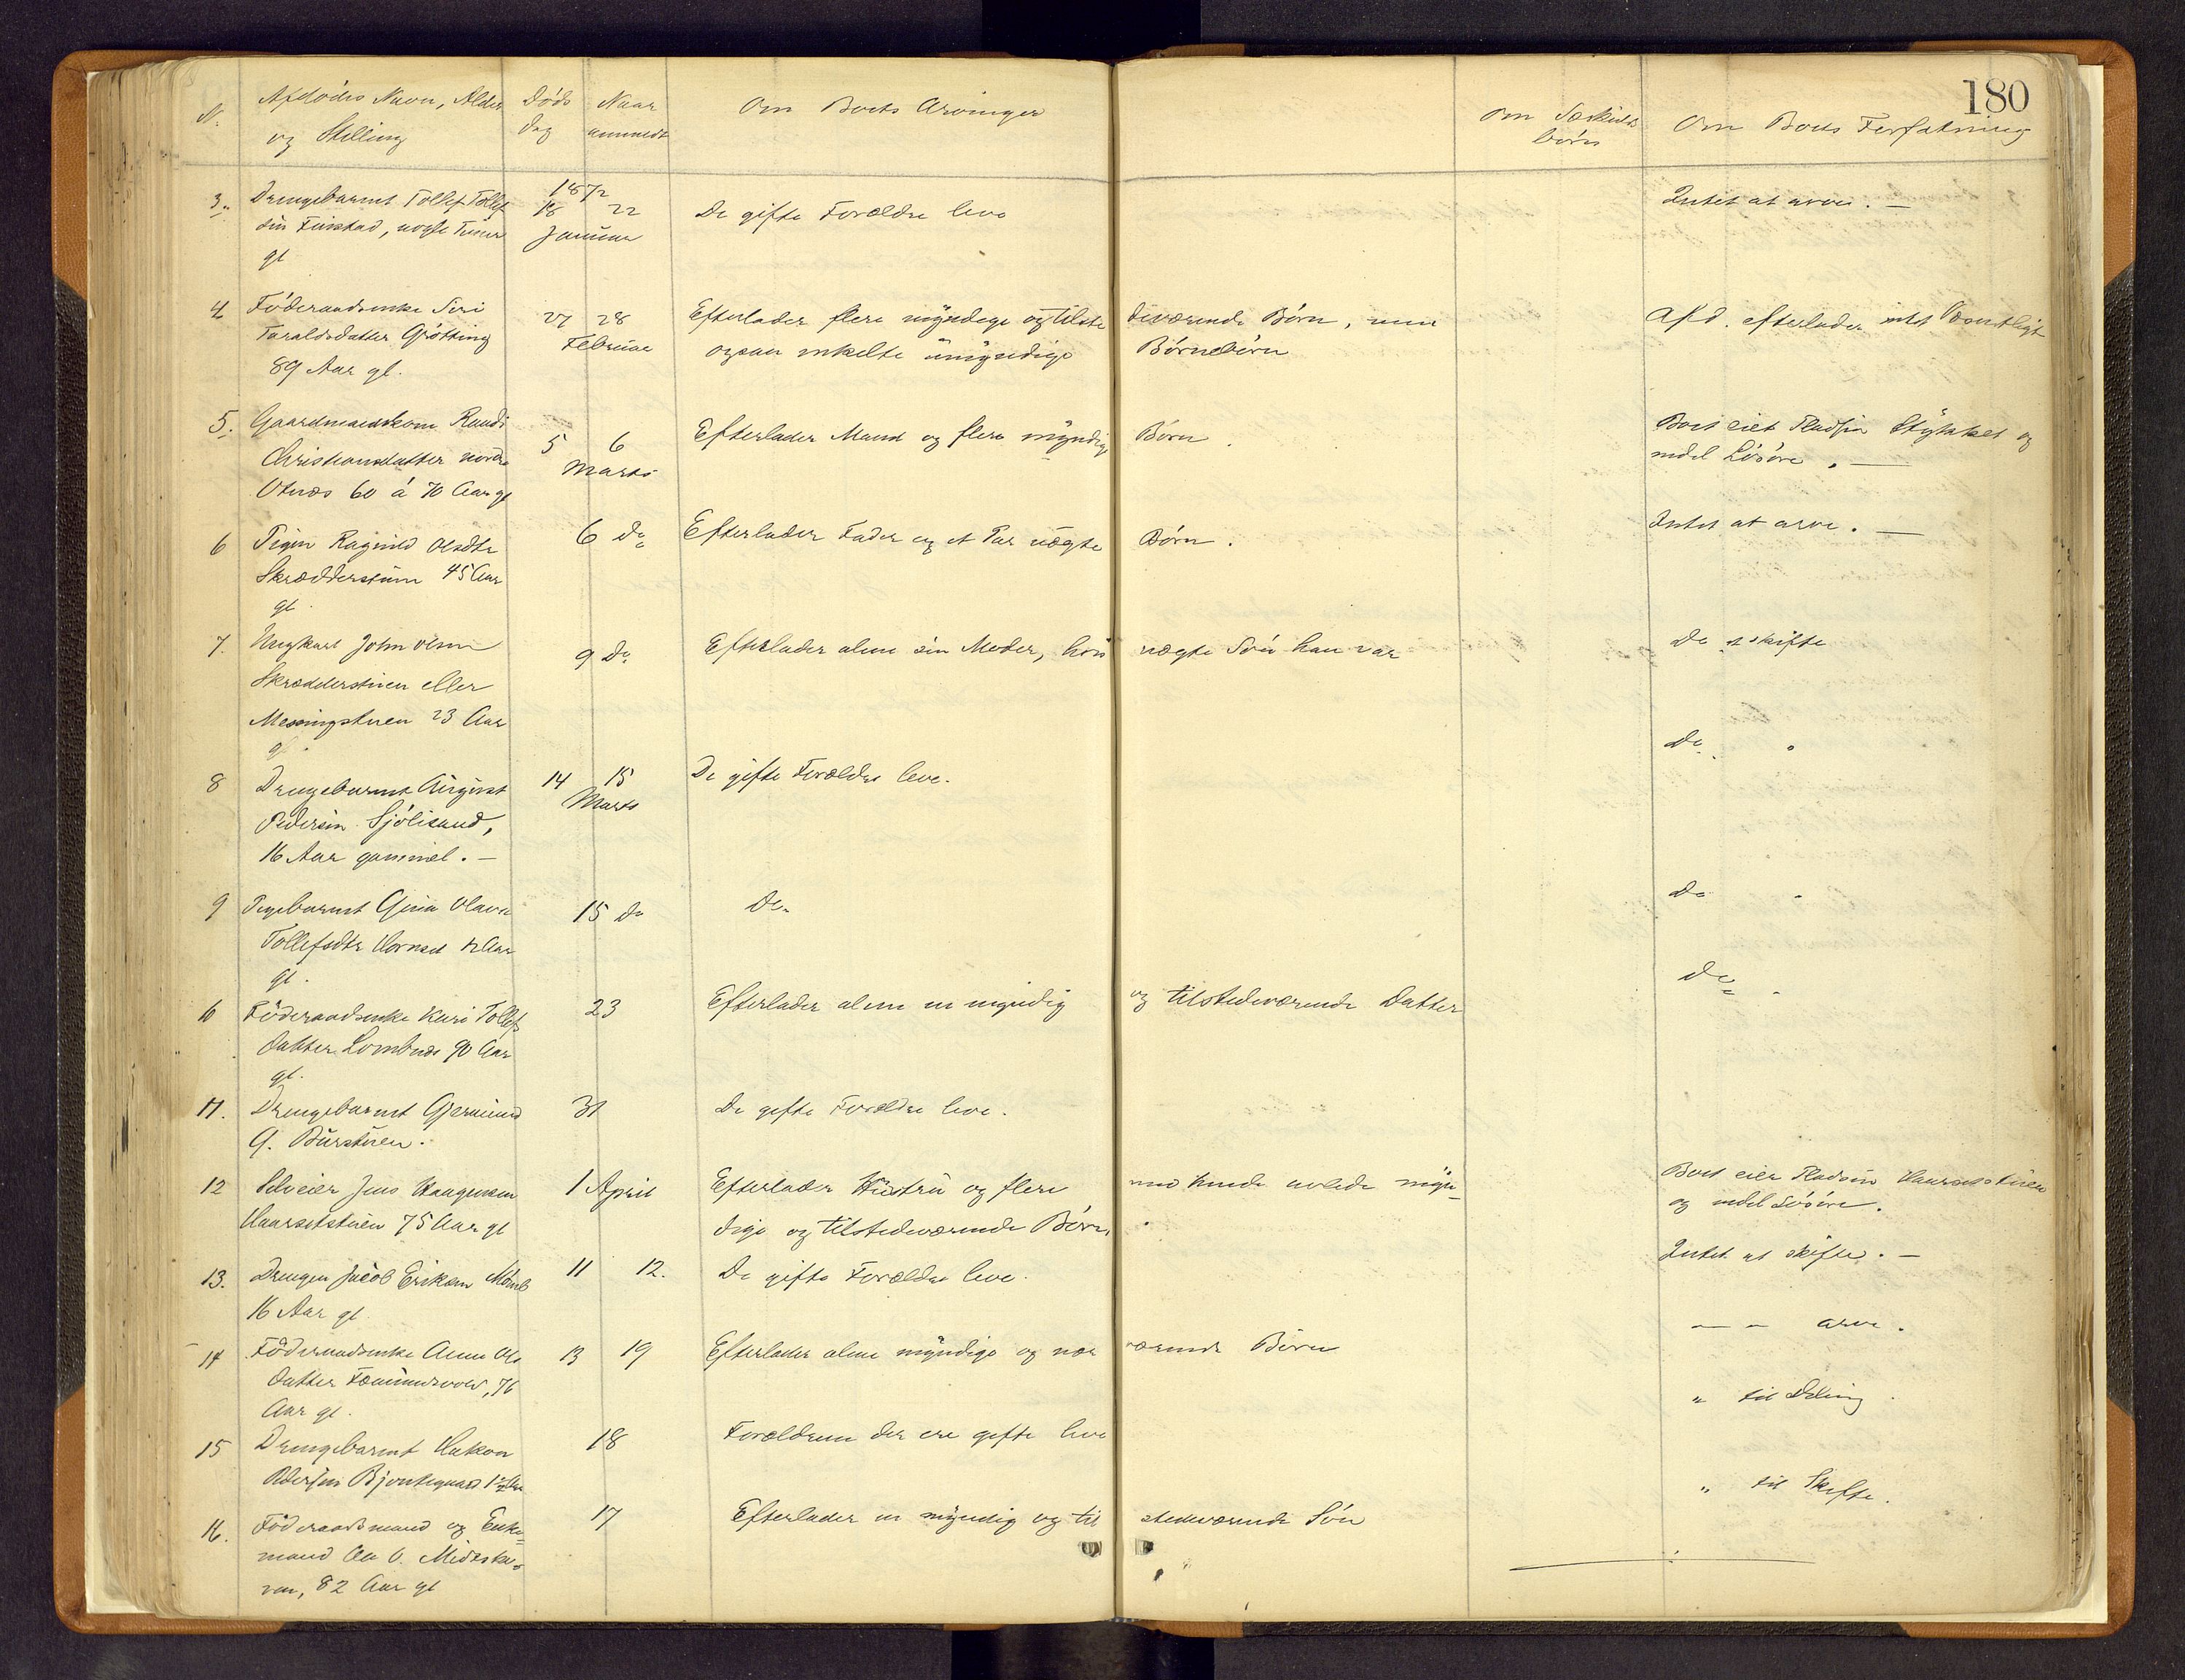 180
N. Afdødes Navn, Alder Døds Naar Om Boets Arvinger Om Særkulds Om Boets Forfatning
og Stilling Dag anmeldt børn
3. Drengebarnet Tollef Tollef 1872 Intet at arve. —
sen Finstad, 18 22 De gifte Forældre leve
gl Januar
4. Føderaadsenke Siri 27 28 Efterlader flere myndige og tilste deværende Børn, men Afd. efterlader intet Væsentligt
Taraldsdatter Grøtting Februar ogsaa enkelte umyndige Børnebørn
89 Aar gl.
5. Gaardmandskone Randi 5 6 Efterlader Mand og flere myndige Børn. Boet eier Pladsen og
Christiansdatter nordre Marts endel Løsøre. —
Otnes 60 á 70 Aar gl
6 Pigen Ragnild Olsdtr 6 do Efterlader Fader og et Par uægte Børn. Intet at arve. —
Skrædderstuen 45 Aar
gl.
7. Ungkarl John Olsen 9 Do Efterlader alene sin Moder, hvis uægte Søn han var Do at skifte
Skrædderstuen eller
Messingstuen 23 Aar
gl.
8 Drengebarnet August 14 15 De gifte Forældre leve. Do "
Pedersen Sjølisand, Marts
16 Aar gammel. —
9 Pigebarnet Gina Olava 15 Do Do Do "
Tollefsdtr Hornset 12 Aar
gl.
10 Føderaadsenke Kari Tollefs 23 Efterlader alene en myndig og tilstedeværende Datter Do "
datter Lombnæs 90 Aar
gl.
11. Drengebarnet Gjermund 31 De gifte Forældre leve.
G. Burstuen.
12 Selveier Jens Haagensen 1 April Efterlader Hustru og flere med hende avlede myn- Boet eier Pladsen Haarsetstuen
Haarsetstuen 75 Aar gl dige og tilstedeværende Børn. og endel Løsøre.
13. Drengen Jacob Eriksen 11 12. De gifte Forældre leve. Intet at skifte. —
16 Aar gl
14 Føderaadsenke Anne Ols 13 19 Efterlader alene myndige og nær værende Børn — " — arve.
datter Fæmundsvold, 76
Aar gl.
15 Drengebarnet Hakon 18 Forældrene der ere gifte leve " til Deling.
Pedersen Bjontegaard 1½ Aar
16. Føderaadsmand og Enke= 17 Efterlader en myndig og til stedeværende Søn " til Skifte.
mand Ole O. Midtska=
ven, 82 Aar gl